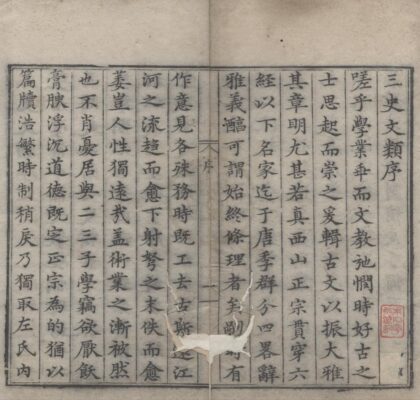 三史文類序
嗟乎學業乖而文教弛憫時好古之
士思起而崇之爰輯古文以振大雅
其章明尤甚若真西山正宗貫穿六
經以下名家迄于唐季群分四畧辭
雅義醇可謂始終條理者矣劘時有
作意見各殊務時既工去古斯遠江
河之流趨而愈下射弩之末佚而愈
萎豈人性獨遠哉盖術業之漸被然
也不肖憂居與二三子學竊欲厭飫
膏腴浮沉道德既定正宗為的猶以
篇牘浩繁時制稍戾乃獨取左氏內
序
一